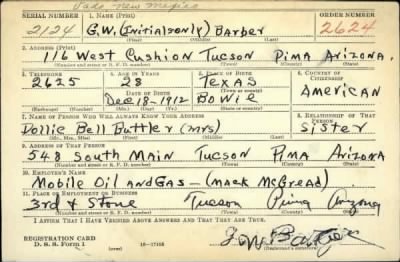 Pado New Mexico
SERIAL NUMBER 1. NAME (Print) ORDER NUMBER
2124 G.W. (Initials only) Barber 2624
(First) (Middle) (Last)
2. ADDRESS (Print)
116 West Cushion Tucson Pima Arizona.
(Number and street or R. F. D. number) (Town) (County) (State)
3. TELEPHONE 4. AGE IN YEARS 5. PLACE OF BIRTH 6. COUNTRY OF CITIZENSHIP
2625 28 Texas
DATE OF BIRTH (Town or county)
Dec 18-1912 Bowie American
(Exchange) (Number) (Mo.) (Day) (Yr.) (State or country)
7. NAME OF PERSON WHO WILL ALWAYS KNOW YOUR ADDRESS 8. RELATIONSHIP OF THAT PERSON
Dollie Bell Buttler (mrs) Sister
(Mr., Mrs., Miss) (First) (Middle) (Last)
9. ADDRESS OF THAT PERSON
548 South Main Tucson Pima Arizona
(Number and street or R. F. D. number) (Town) (County) (State)
10. EMPLOYER'S NAME
Mobile Oil and Gas - (Mack McGread).
11. PLACE OF EMPLOYMENT OR BUSINESS
3rd & Stone Tucson Pima Arizona
(Number and street or R. F. D. number) (Town) (County) (State)
I AFFIRM THAT I HAVE VERIFIED ABOVE ANSWERS AND THAT THEY ARE TRUE.
REGISTRATION CARD
D. S. S. Form 1 (over) 16-17105
(Registrant's signature)